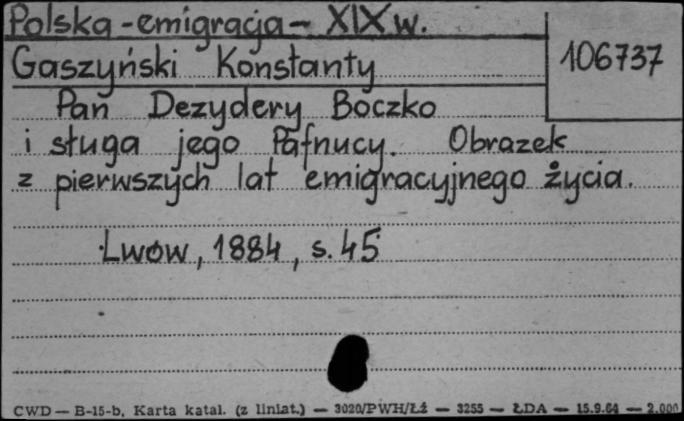 Polska - emigracja - XIX w.
106737
Gaszyński Konstanty
Pan Dezydery Boczko
i sługa jego Pafnucy. Obrazek
z pierwszych lat emigracyjnego życia.
Lwów, 1884, s. 45
CWD — B-15-b, Karta katal. (z liniat.) — 3020/PWH/Łź — 3255 — ŁDA — 15.9.64 — 2.000